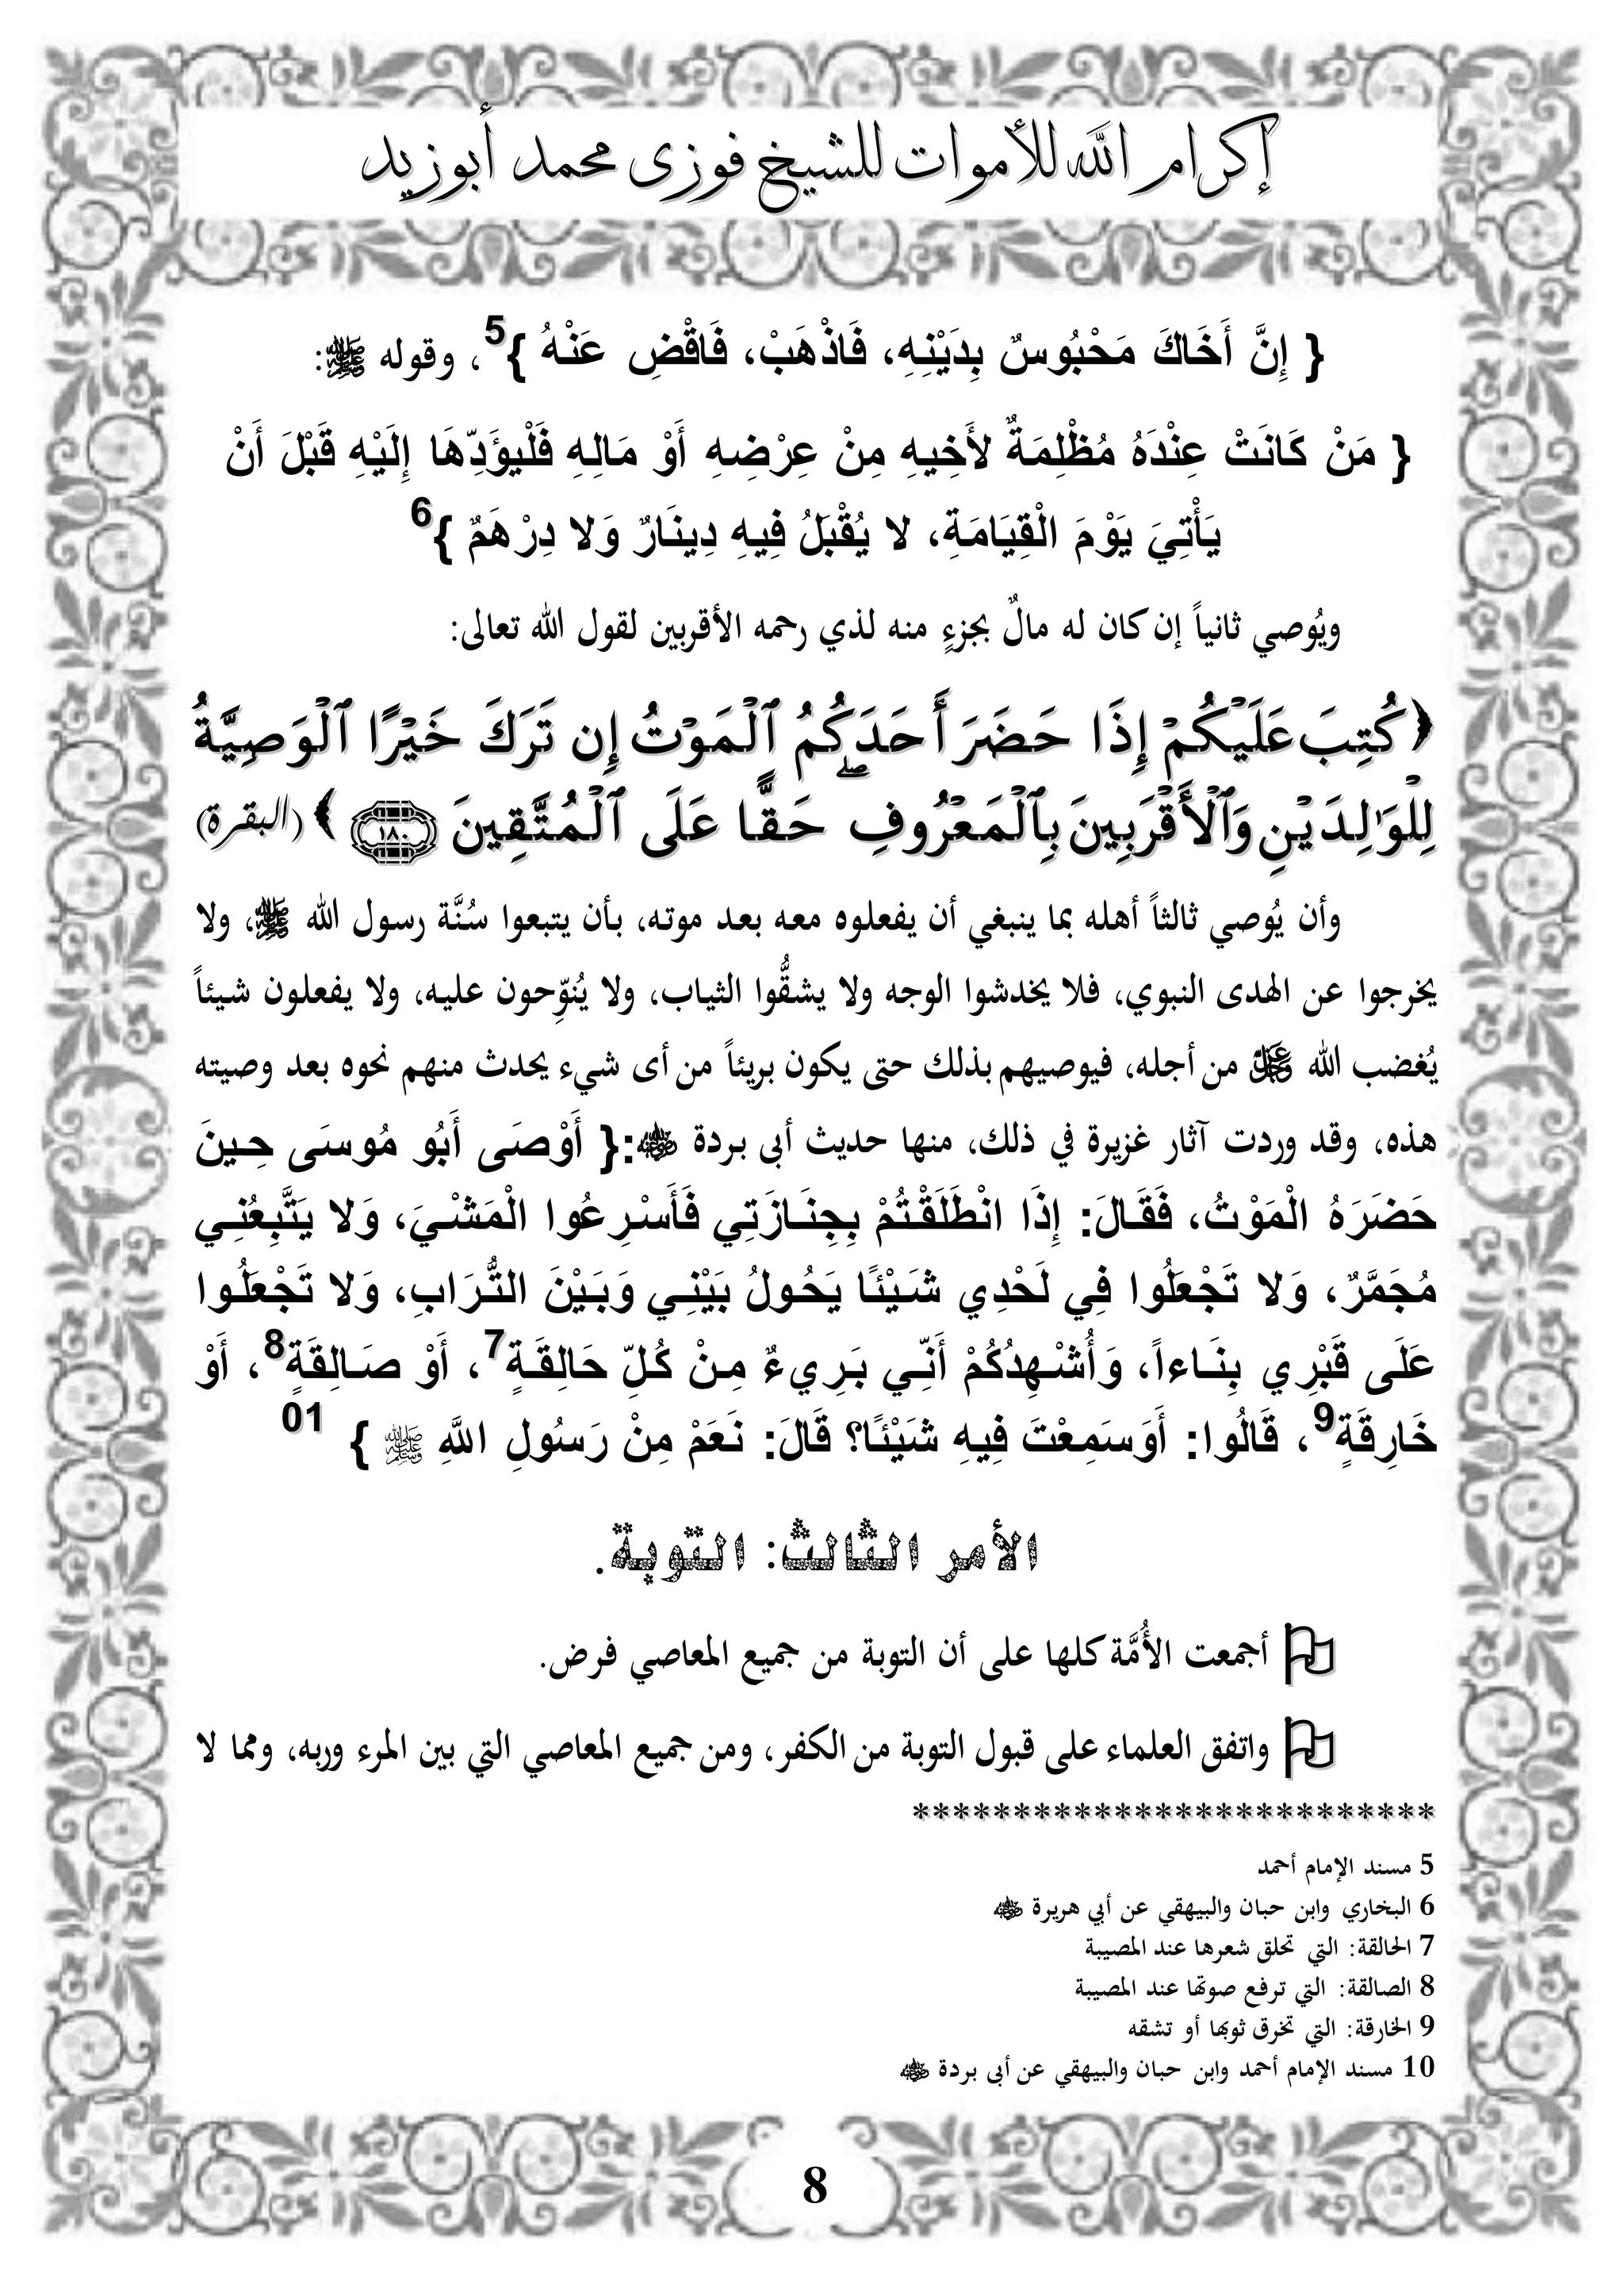 إكرام الله للأموات للشيخ فوزى محمد أبوزيد
{ إِنَّ أَخَاكَ مَحْبُوسٌ بِدَيْنِهِ، فَاذْهَبْ، فَاقْضِ عَنْهُ }5، وقوله ﷺ:
{ مَنْ كَانَتْ عِنْدَهُ مُظْلِمَةٌ لأَخِيهِ مِنْ عِرْضِهِ أَوْ مَالِهِ فَلْيؤَدِّهَا إِلَيْهِ قَبْلَ أَنْ
يَأْتِيَ يَوْمَ الْقِيَامَةِ، لا يُقْبَلُ فِيهِ دِينَارٌ وَلا دِرْهَمٌ }6
ويُوصي ثانياً إن كان له مالٌ بجزءٍ منه لذي رحمه الأقربين لقول الله تعالى:
﴿ كُتِبَ عَلَيْكُمْ إِذَا حَضَرَ أَحَدَكُمُ ٱلْمَوْتُ إِن تَرَكَ خَيْرًا ٱلْوَصِيَّةُ
لِلْوَٰلِدَيْنِ وَٱلْأَقْرَبِينَ بِٱلْمَعْرُوفِ ۖ حَقًّا عَلَى ٱلْمُتَّقِينَ ١٨٠ ﴾ (البقرة)
وأن يُوصي ثالثاً أهله بما ينبغي أن يفعلوه معه بعد موته، بأن يتبعوا سُنَّة رسول الله ﷺ، ولا
يخرجوا عن الهدى النبوي، فلا يخدشوا الوجه ولا يشقُّوا الثياب، ولا يُنوِّحون عليه، ولا يفعلون شيئاً
يُغضب الله ﷻ من أجله، فيوصيهم بذلك حتى يكون بريئاً من أى شيء يحدث منهم نحوه بعد وصيته
هذه، وقد وردت آثار غزيرة في ذلك، منها حديث أبى بردة ؓ:{ أَوْصَى أَبُو مُوسَى حِينَ
حَضَرَهُ الْمَوْتُ، فَقَالَ: إِذَا انْطَلَقْتُمْ بِجِنَازَتِي فَأَسْرِعُوا الْمَشْيَ، وَلا يَتَّبِعُنِي
مُجَمَّرٌ، وَلا تَجْعَلُوا فِي لَحْدِي شَيْئًا يَحُولُ بَيْنِي وَبَيْنَ التُّرَابِ، وَلا تَجْعَلُوا
عَلَى قَبْرِي بِنَاءاً، وَأُشْهِدُكُمْ أَنِّي بَرِيءٌ مِنْ كُلِّ حَالِقَةٍ7، أَوْ صَالِقَةٍ8، أَوْ
خَارِقَةٍ9، قَالُوا: أَوَسَمِعْتَ فِيهِ شَيْئًا؟ قَالَ: نَعَمْ مِنْ رَسُولِ اللَّهِ ﷺ } 01
الأمر الثالث: التوبة.
أجمعت الأُمَّة كلها على أن التوبة من جميع المعاصي فرض.
واتفق العلماء على قبول التوبة من الكفر، ومن جميع المعاصي التي بين المرء وربه، ومما لا
**************************
5 مسند الإمام أحمد
6 البخاري وابن حبان والبيهقي عن أبي هريرة ؓ
7 الحالقة: التي تحلق شعرها عند المصيبة
8 الصالقة: التي ترفع صوتها عند المصيبة
9 الخارقة: التي تخرق ثوبها أو تشقه
10 مسند الإمام أحمد وابن حبان والبيهقي عن أبى بردة ؓ
8